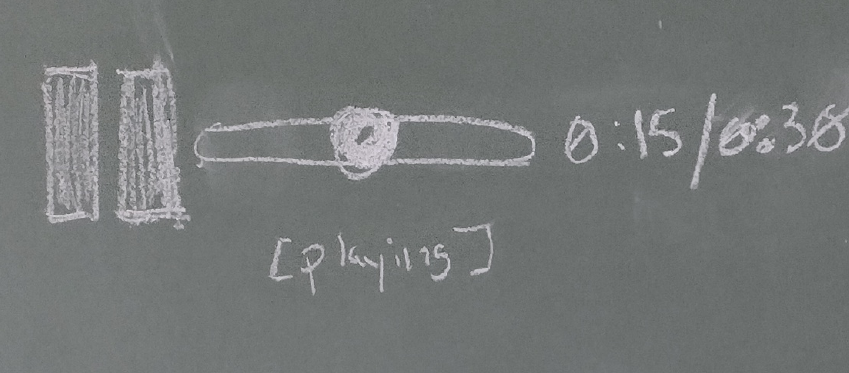 0:15/0:30
[playing]